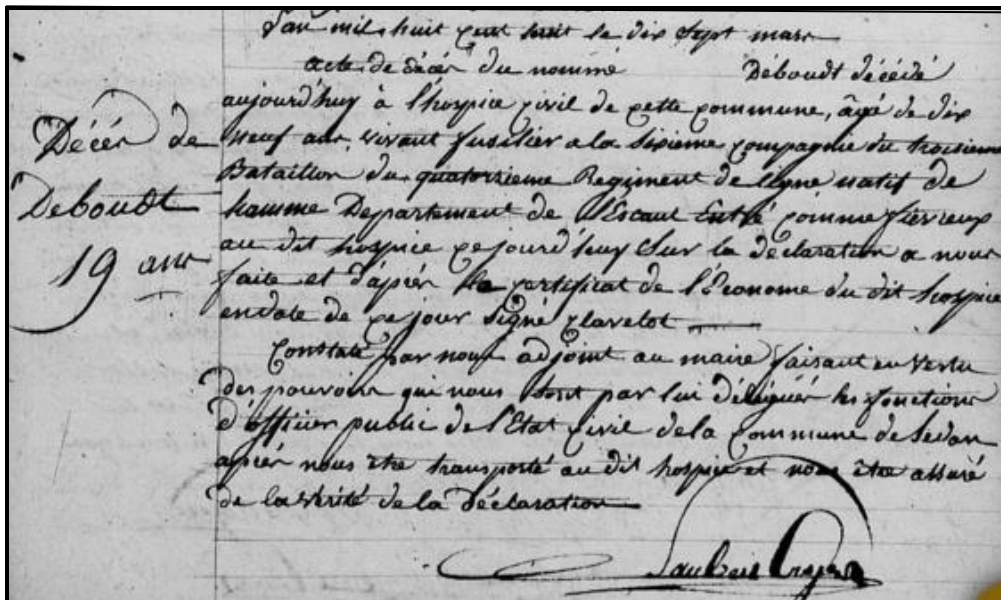 L'an mil huit cent huit le dix sept mars
acte de décès du nommé Déboudt décédé
aujourd'huy à l'hospice civil de cette commune, âgé de dix
neuf ans, vivant fusilier a la sixieme compagnie du troisieme
Bataillon du quatorzieme Regiment de ligne natif de
hamme Departement de l'Escaut Entré comme fievreux
au dit hospice cejourd'huy Sur la declaration a nous
faite et d'après le certificat de l'Econome du dit hospice
en date de ce jour signé Clavelot
Constaté par nous adjoint au maire faisant en vertu
des pouvoirs que nous sont par lui délégués les fonctions
d'officier public de l'Etat civil de la commune de Sedan
après nous être transporté au dit hospice et nous être assuré
de la vérité de la déclaration
Décès de
Deboudt
19 ans